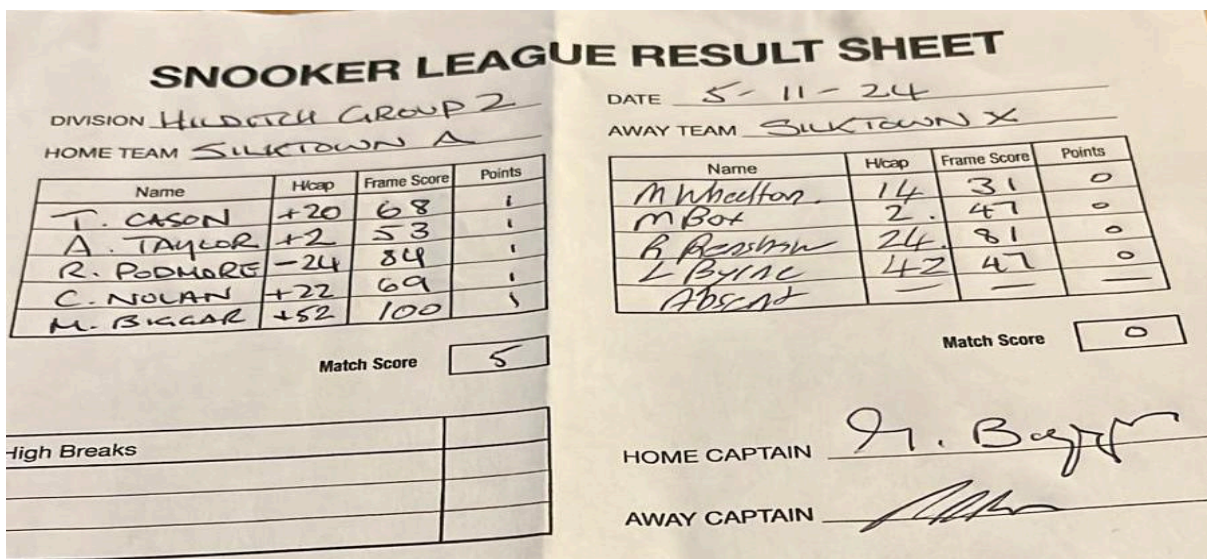 SNOOKER LEAGUE RESULT SHEET
DIVISION HILDITCH GROUP 2
HOME TEAM SILKTOWN A
Name H/cap Frame Score Points
T. CASON +20 68 1
A. TAYLOR +2 53 1
R. PODMORE -24 84 1
C. NOLAN +22 69 1
M. BIGGAR +52 100 1
Match Score 5
High Breaks
DATE 5-11-24
AWAY TEAM SILKTOWN X
Name H/cap Frame Score Points
M Wheelton. 14 31 0
M Box 2. 47 0
R Renshaw 24. 81 0
L Byrne 42 47 0
Absent — — —
Match Score 0
HOME CAPTAIN M. Biggar
AWAY CAPTAIN